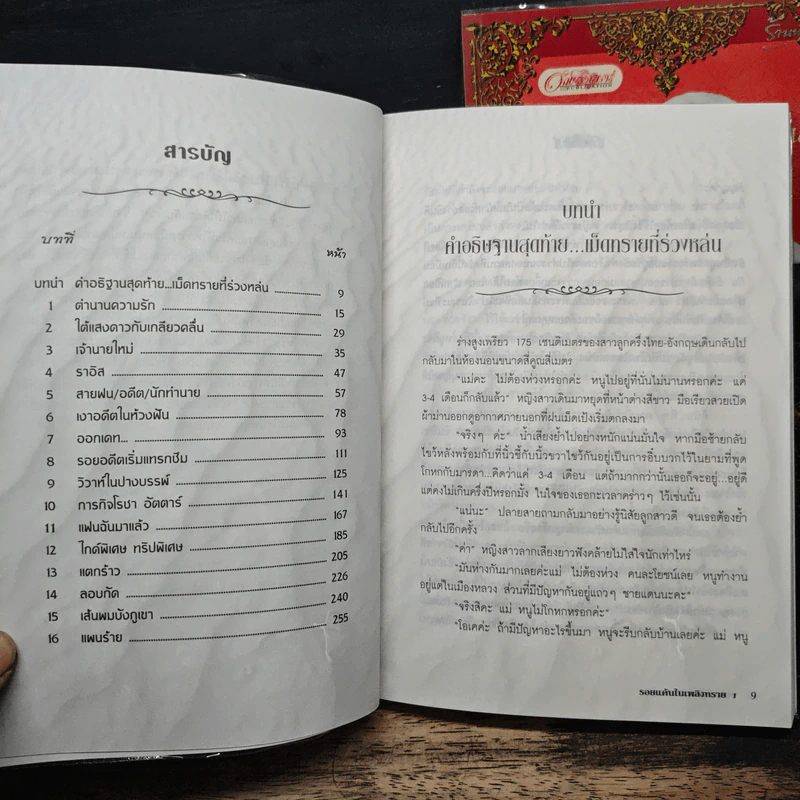 สารบัญ
บทที่
หน้า
บทนำ คำอธิฐานสุดท้าย...เม็ดทรายที่ร่วงหล่น 9
1 ตำนานความรัก 15
2 ใต้แสงดาวกับเกลียวคลื่น 29
3 เจ้านายใหม่ 35
4 ราอิส 47
5 สายฝน/อดีต/นักทำนาย 57
6 เงาอดีตในห้วงฝัน 78
7 ออกเดท... 93
8 รอยอดีตเริ่มแทรกซึม 111
9 วิวาห์ในปางบรรพ์ 125
10 ภารกิจโรชา อัตตาร์ 141
11 แฟนฉันมาแล้ว 167
12 ไกด์พิเศษ ทริปพิเศษ 185
13 แตกร้าว 205
14 ลอบกัด 226
15 เส้นผมบังภูเขา 240
16 แผนร้าย 255
บทนำ
คำอธิษฐานสุดท้าย...เม็ดทรายที่ร่วงหล่น
ร่างสูงเพรียว 175 เซนติเมตรของสาวลูกครึ่งไทย-อังกฤษเดินกลับไป
กลับมาในห้องนอนขนาดสี่คูณสี่เมตร
"แม่คะ ไม่ต้องห่วงหรอกค่ะ หนูไปอยู่ที่นั่นไม่นานหรอกค่ะ แค่
3-4 เดือนก็กลับแล้ว" หญิงสาวเดินมาหยุดที่หน้าต่างสีขาว มือเรียวสวยเปิด
ผ้าม่านออกดูอากาศภายนอกที่ฝนเม็ดเป้งเริ่มตกลงมา
"จริงๆ ค่ะ" น้ำเสียงย้ำไปอย่างหนักแน่นมั่นใจ หากมือซ้ายกลับ
ไขว้หลังพร้อมกับที่นิ้วชี้กับนิ้วขวาไขว้กันอยู่เป็นการอิ๊บบวกไว้ในยามที่พูด
โกหกกับมารดา...คิดว่าแค่ 3-4 เดือน แต่ถ้ามากกว่านั้นเธอก็จะอยู่...อยู่ดี
แต่คงไม่เกินครึ่งปีหรอกมั้ง ในใจของเธอกะเวลาคร่าวๆ ไว้เช่นนั้น
"แน่นะ" ปลายสายถามกลับมาอย่างรู้นิสัยลูกสาวดี จนเธอต้องย้ำ
กลับไปอีกครั้ง
"ค่า" หญิงสาวลากเสียงยาวฟังคล้ายไม่ใส่ใจนักเท่าไหร่
"มันห่างกันมากเลยค่ะแม่ ไม่ต้องห่วง คนละโยชน์เลย หนูทำงาน
อยู่แต่ในเมืองหลวง ส่วนที่มีปัญหากันอยู่แถวๆ ชายแดนนะคะ"
"จริงสิคะ แม่ หนูไม่โกหกหรอกค่ะ"
"โอเคค่ะ ถ้ามีปัญหาอะไรขึ้นมา หนูจะรีบกลับบ้านเลยค่ะ แม่ หนู
รอยแค้นในเพลิงทราย 1 9